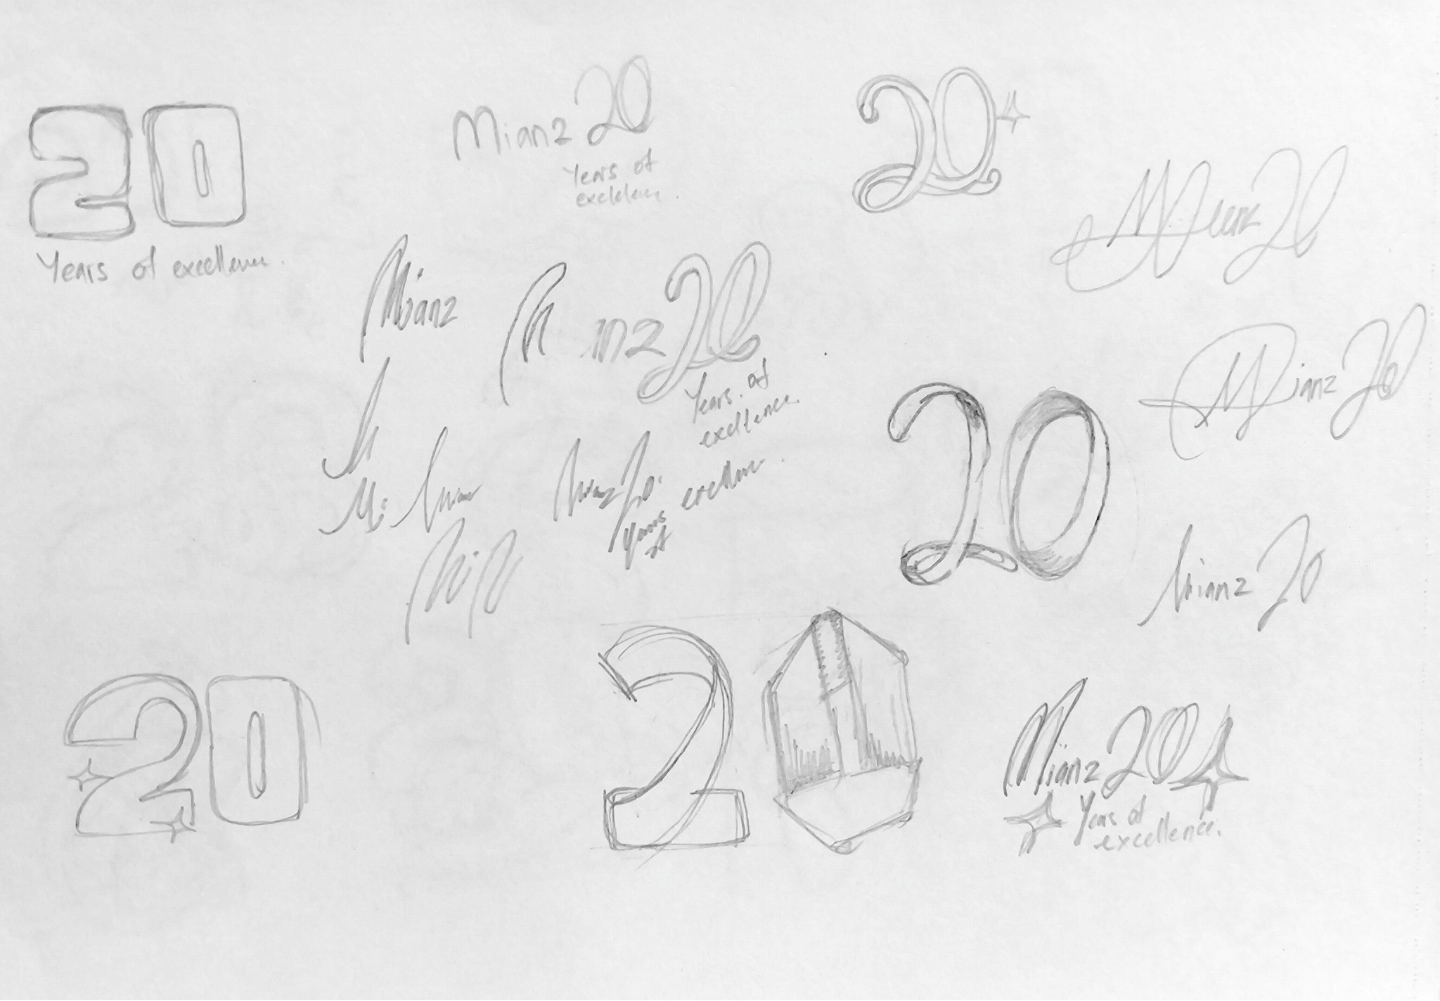 20
Years of excellence.
Mianz 20
Years of
20
Mianz 20
Mianz
20
Years of
excellence.
Mianz 20
20
Mianz 20
Years
of
20
20
Mianz 20
Years of
excellence.